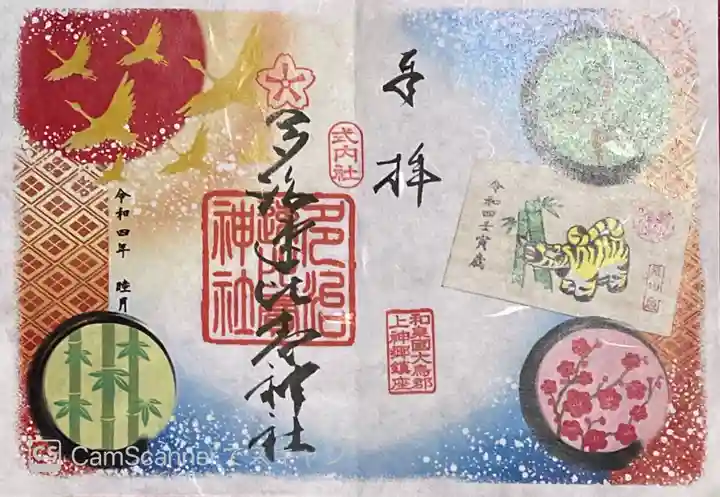 奉拝
令和四壬寅歳
和泉國大鳥郡
上神郷鎮座
式内社
多治速比売神社
令和四年 睦月
CS CamScanner でスキャン